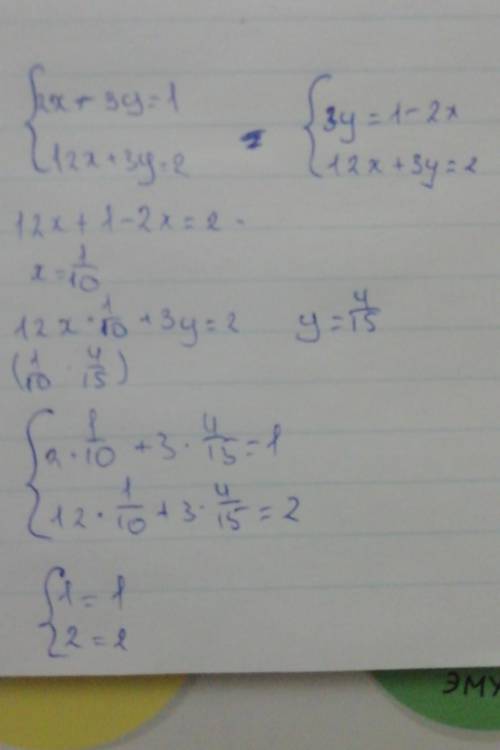 {2x + 3y = 1 = {3y = 1 - 2x
{12x + 3y = 2 {12x + 3y = 2
12x + 1 - 2x = 2
x = 1/10
12x · 1/10 + 3y = 2 y = 4/15
(1/10 4/15)
{2 · 1/10 + 3 · 4/15 = 1
{12 · 1/10 + 3 · 4/15 = 2
{1 = 1
{2 = 2
ЭМУ